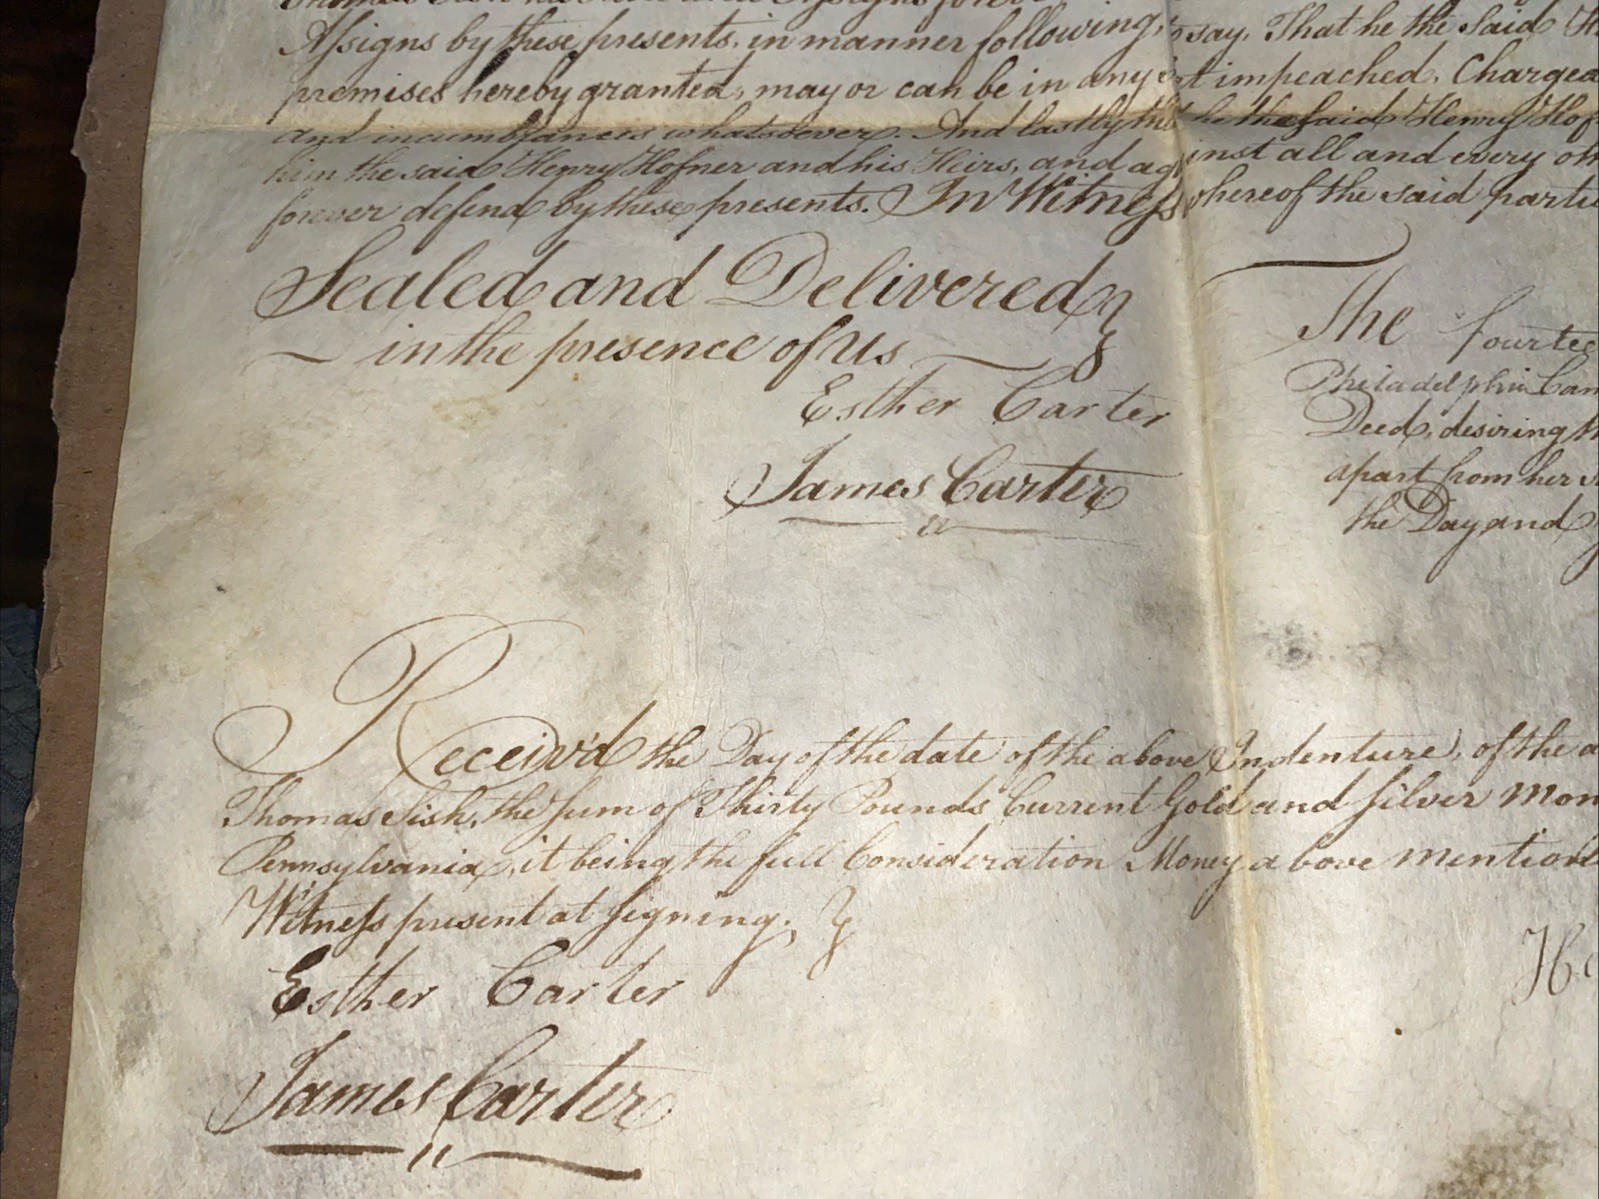 Assigns by these presents, in manner following, say, That he the Said
premises hereby granted, may or can be in any impeached, Charged
and incumbrances whatsoever. And lastly he the said Henry Hof
him the said Henry Hofner and his Heirs, and against all and every oth
forever defend by these presents. In Witness whereof the said partie
Sealed and Delivered
in the presence of Us
Esther Carter
James Carter
The fourtee
Philadelphia
Deed, desiring th
apart from her
the Day and
Receiv'd the Day of the date of the above Indenture, of the a
Thomas Sish, the sum of Thirty Pounds Current Gold and Silver Mon
Pennsylvania, it being the full Consideration Money above mention
Witness present at signing.
Esther Carter
James Carter
He